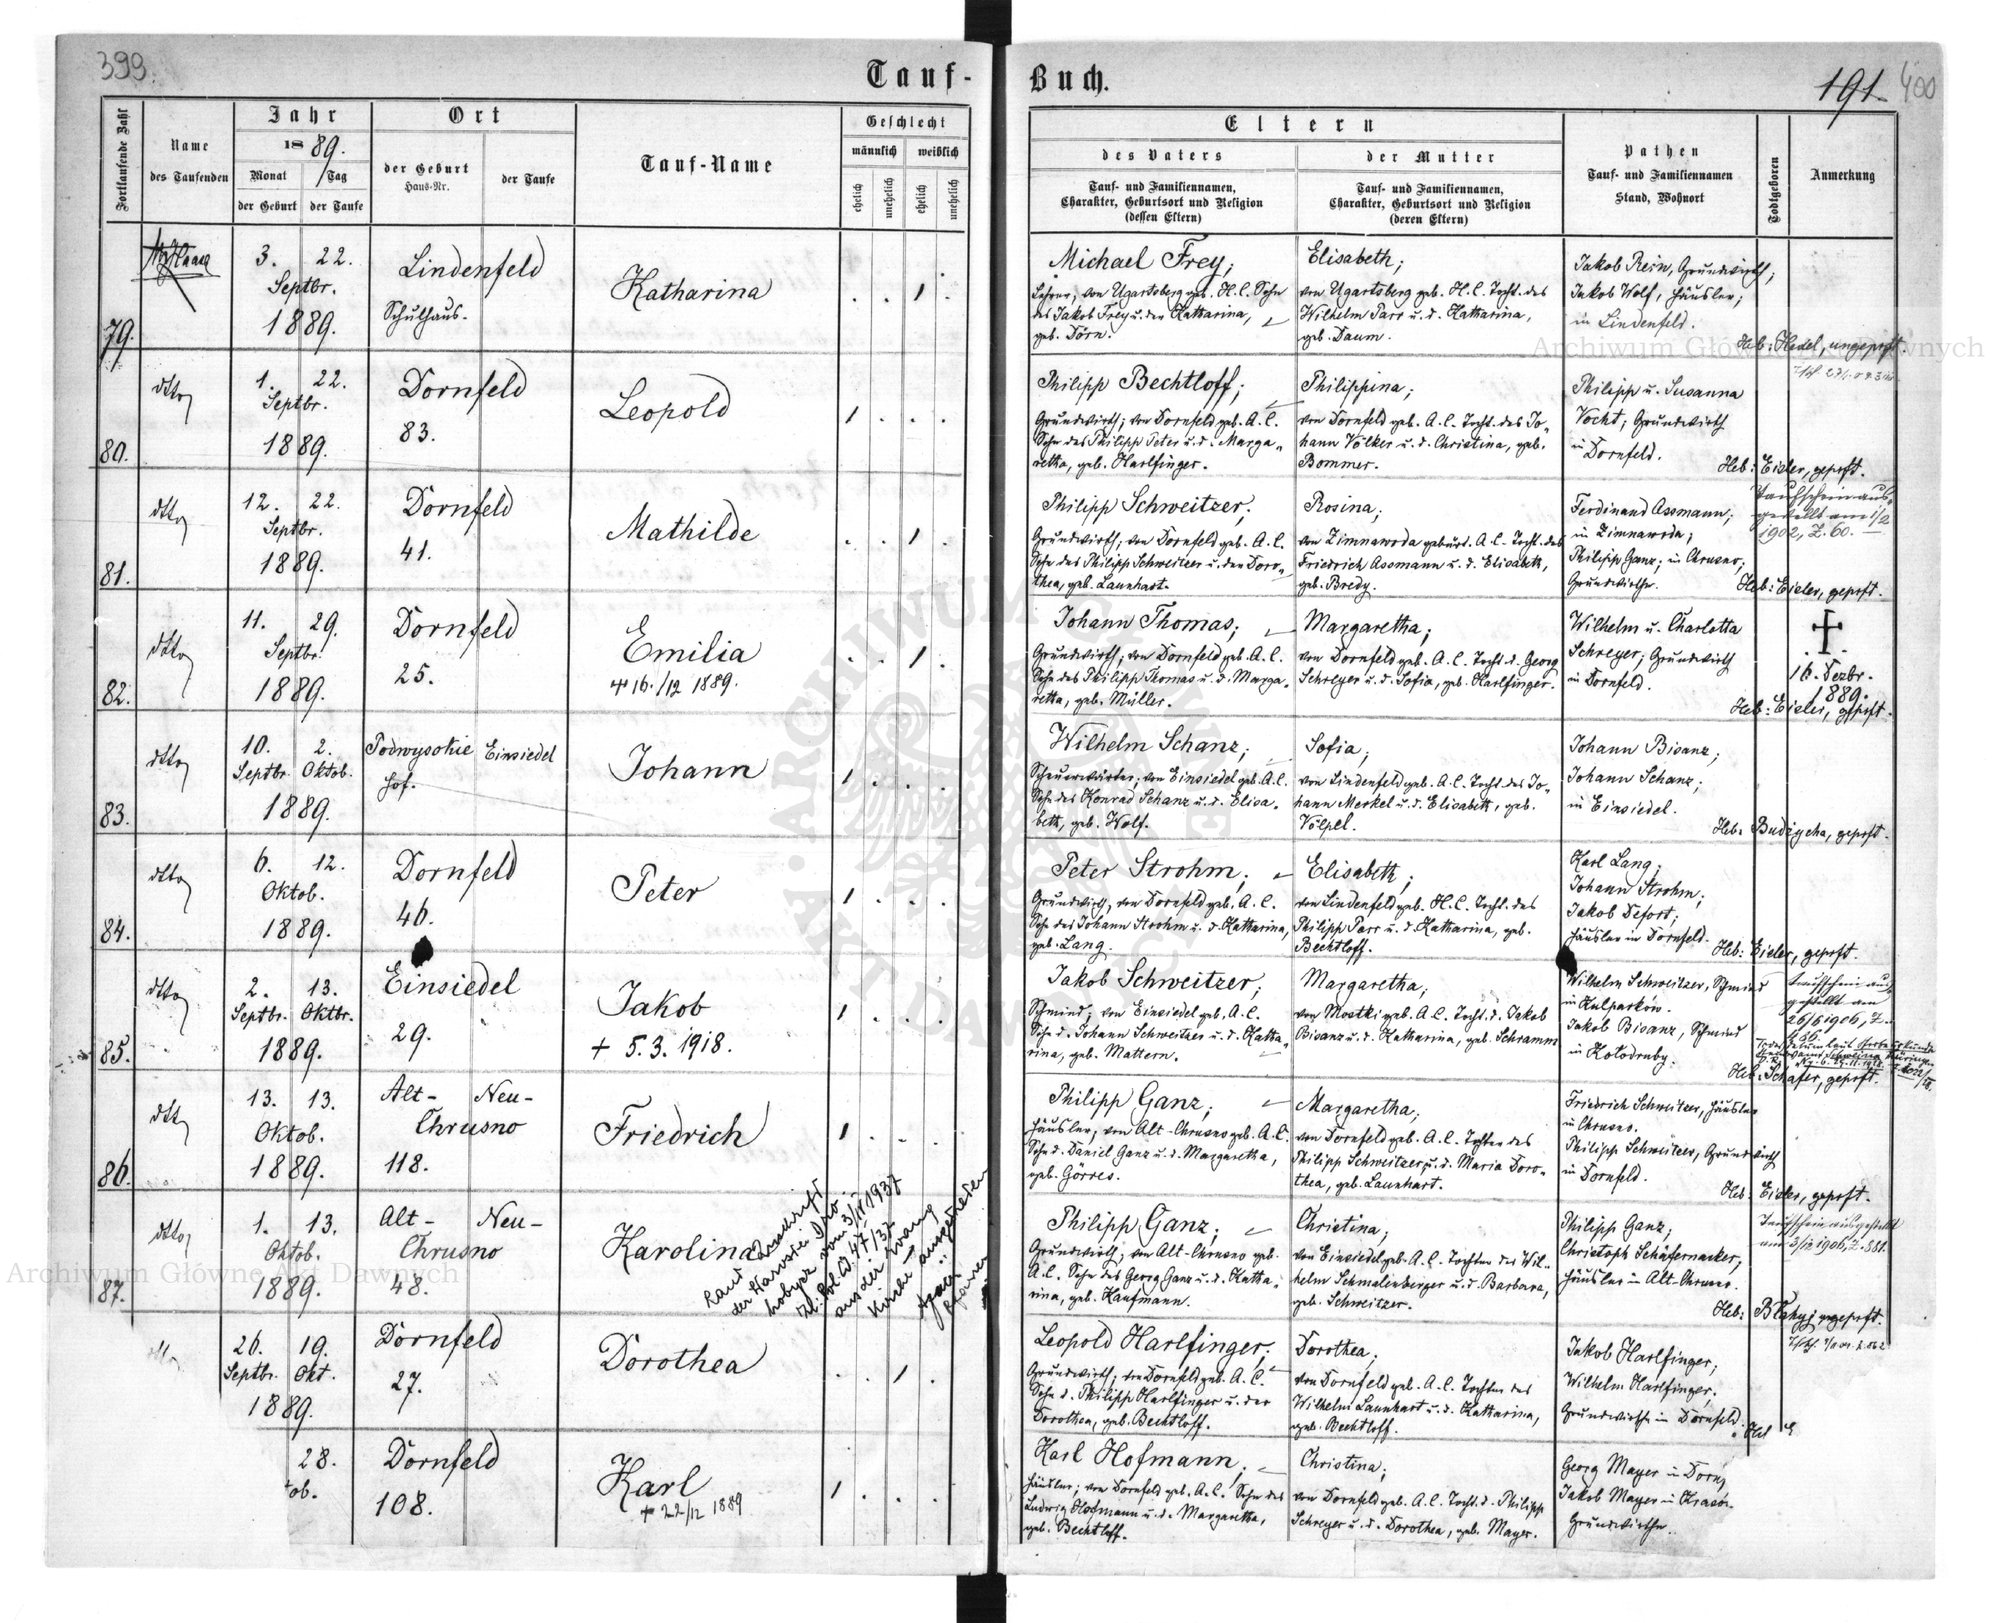 399.
Tauf-
Buch.
191.
400
Fortlaufende Zahl
Name
des Taufenden
Jahr
1889.
Monat
Tag
der Geburt
der Taufe
Ort
der Geburt
Haus-Nr.
der Taufe
Tauf-Name
Geschlecht
männlich
weiblich
ehelich
unehelich
ehelich
unehelich
Eltern
des Vaters
Tauf- und Familiennamen,
Charakter, Geburtsort und Religion
(dessen Eltern)
der Mutter
Tauf- und Familiennamen,
Charakter, Geburtsort und Religion
(deren Eltern)
Pathen
Tauf- und Familiennamen
Stand, Wohnort
Todtgeboren
Anmerkung
79.
3. 22.
Septbr.
1889.
Lindenfeld
Schulhaus.
Katharina
Michael Frey;
Lehrer; von Ugartsberg geb. H.C. Sohn
des Jakob Frey u. der Katharina,
geb. Dörn.
Elisabeth;
von Ugartsberg geb. H.C. Tocht. des
Wilhelm Parr u. d. Katharina,
geb. Daum.
Jakob Rein, Grundwirth;
Jakob Wolf, Häusler;
in Lindenfeld.
Heb: Hedel, ungeprft.
80.
dtto
1. 22.
Septbr.
1889.
Dornfeld
83.
Leopold
Philipp Bechtloff;
Grundwirth; von Dornfeld geb. A.C.
Sohn des Philipp Peter u. d. Marga-
retha, geb. Harlfinger.
Philippina;
von Dornfeld geb. A.C. Tocht. des Jo-
hann Völker u. d. Christina, geb.
Bommer.
Philipp u. Susanna
Vocht; Grundwirth
in Dornfeld.
Heb: Eisler, geprft.
81.
dtto
12. 22.
Septbr.
1889.
Dornfeld
41.
Mathilde
Philipp Schweitzer;
Grundwirth; von Dornfeld geb. A.C.
Sohn des Philipp Schweitzer u. der Doro-
thea, geb. Launhart.
Rosina;
von Zimnawoda gebürt. A.C. Tocht. des
Friedrich Assmann u. d. Elisabeth,
geb. Bredy.
Ferdinand Assmann;
in Zimnawoda;
Philipp Ganz; in Chrusno;
Grundwirthe.
Taufschein aus-
gestellt am 1/2
1902, Z. 60.
Heb: Eisler, geprft.
82.
dtto
11. 29.
Septbr.
1889.
Dornfeld
25.
Emilia
+ 16./12 1889.
Johann Thomas;
Grundwirth; von Dornfeld geb. A.C.
Sohn des Philipp Thomas u. d. Marga-
retha, geb. Müller.
Margaretha;
von Dornfeld geb. A.C. Tocht. d. Georg
Schreyer u. d. Sofia, geb. Harlfinger.
Wilhelm u. Charlotta
Schreyer; Grundwirth
in Dornfeld.
16. Dezbr.
1889.
Heb: Eisler, geprft.
83.
dtto
10. 2.
Septbr. Oktob.
1889.
Podwysokie Einsiedel
Hof.
Johann
Wilhelm Schanz;
Scheuerwärter; von Einsiedel geb. A.C.
Sohn des Konrad Schanz u. d. Elisa-
beth, geb. Wolf.
Sofia;
von Lindenfeld geb. A.C. Tocht. des Jo-
hann Merkel u. d. Elisabeth, geb.
Völpel.
Johann Bisanz;
Johann Schanz;
in Einsiedel.
Heb: Budzycha, geprft.
84.
dtto
6. 12.
Oktob.
1889.
Dornfeld
46.
Peter
Peter Strohm;
Grundwirth, von Dornfeld geb. A.C.
Sohn des Johann Strohm u. d. Katharina,
geb. Lang.
Elisabeth;
von Lindenfeld geb. H.C. Tocht. des
Philipp Parr u. d. Katharina, geb.
Bechtloff.
Karl Lang;
Johann Strohm;
Jakob Defort;
Häusler in Dornfeld.
Heb: Eisler, geprft.
85.
dtto
2. 13.
Septbr. Oktbr.
1889.
Einsiedel
29.
Jakob
+ 5.3.1918.
Jakob Schweitzer;
Schmied; von Einsiedel geb. A.C.
Sohn d. Johann Schweitzer u. d. Katha-
rina, geb. Mattern.
Margaretha;
von Mostki geb. A.C. Tocht. d. Jakob
Bisanz u. d. Katharina, geb. Schramm
Wilhelm Schweitzer, Schmied
in Kulparków.
Jakob Bisanz, Schmied
in Kołodruby.
Taufschein aus-
gestellt am
26/6 1906, Z.
86.
Heb: Schäfer, geprft.
86.
dtto
13. 13.
Oktob.
1889.
Alt- Neu-
Chrusno
118.
Friedrich
Philipp Ganz;
Häusler, von Alt-Chrusno geb. A.C.
Sohn d. Daniel Ganz u. d. Margaretha,
geb. Görres.
Margaretha;
von Dornfeld geb. A.C. Tochter des
Philipp Schweitzer u. d. Maria Doro-
thea, geb. Launhart.
Friedrich Schweitzer, Häusler
in Chrusno.
Philipp Schweitzer, Grundwirth
in Dornfeld.
Heb: Eisler, geprft.
87.
dtto
1. 13.
Oktob.
1889.
Alt- Neu-
Chrusno
48.
Karolina
Laut Zuschrift
der Starostei Dro-
hobycz vom 3/II 1937
aus der evang.
Kirche ausgetreten
Philipp Ganz;
Grundwirth; von Alt-Chrusno geb.
A.C. Sohn des Georg Ganz u. d. Katha-
rina, geb. Kaufmann.
Christina;
von Einsiedel geb. A.C. Tochter des Wil-
helm Schmalenberger u. d. Barbara,
geb. Schweitzer.
Philipp Ganz;
Christoph Schäfernacker;
Häusler in Alt-Chrusno.
Taufschein ausgestellt
am 3/12 1906, Z. 881.
26. 19.
Septbr. Okt.
1889.
Dornfeld
27.
Dorothea
Leopold Harlfinger;
Grundwirth; von Dornfeld geb. A.C.
Sohn d. Philipp Harlfinger u. der
Dorothea, geb. Bechtloff.
Dorothea;
von Dornfeld geb. A.C. Tochter des
Wilhelm Launhart u. d. Katharina,
geb. Bechtloff.
Jakob Harlfinger;
Wilhelm Harlfinger;
Grundwirthe in Dornfeld.
28.
tob.
Dornfeld
108.
Karl
+ 22/12 1889
Karl Hofmann;
Häusler; von Dornfeld geb. A.C. Sohn des
Ludwig Hofmann u. d. Margaretha,
geb. Bechtloff.
Christina;
von Dornfeld geb. A.C. Tocht. d. Philipp
Schreyer u. d. Dorothea, geb. Mayer.
Georg Mayer in Dornf
Jakob Mayer in Krasów
Grundwirthe.
Archiwum Główne Akt Dawnych
Archiwum Główne Akt Dawnych
ARCHIWUM GŁÓWNE AKT DAWNYCH